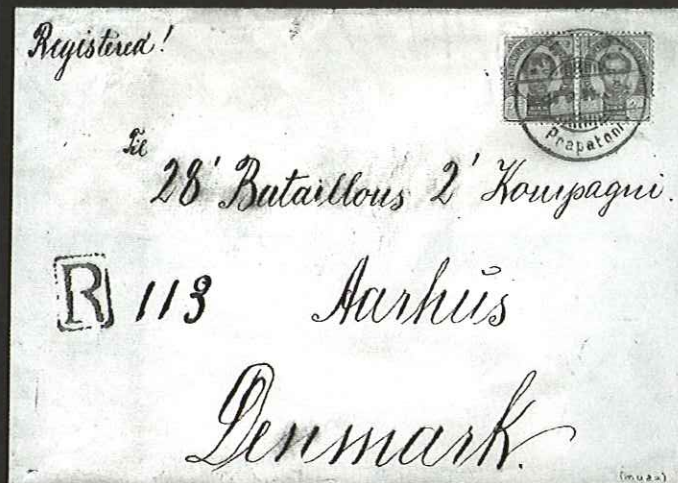 Registered!
Prapatom
Til
28' Bataillons 2' Kompagni.
R 113 Aarhus
Denmark.